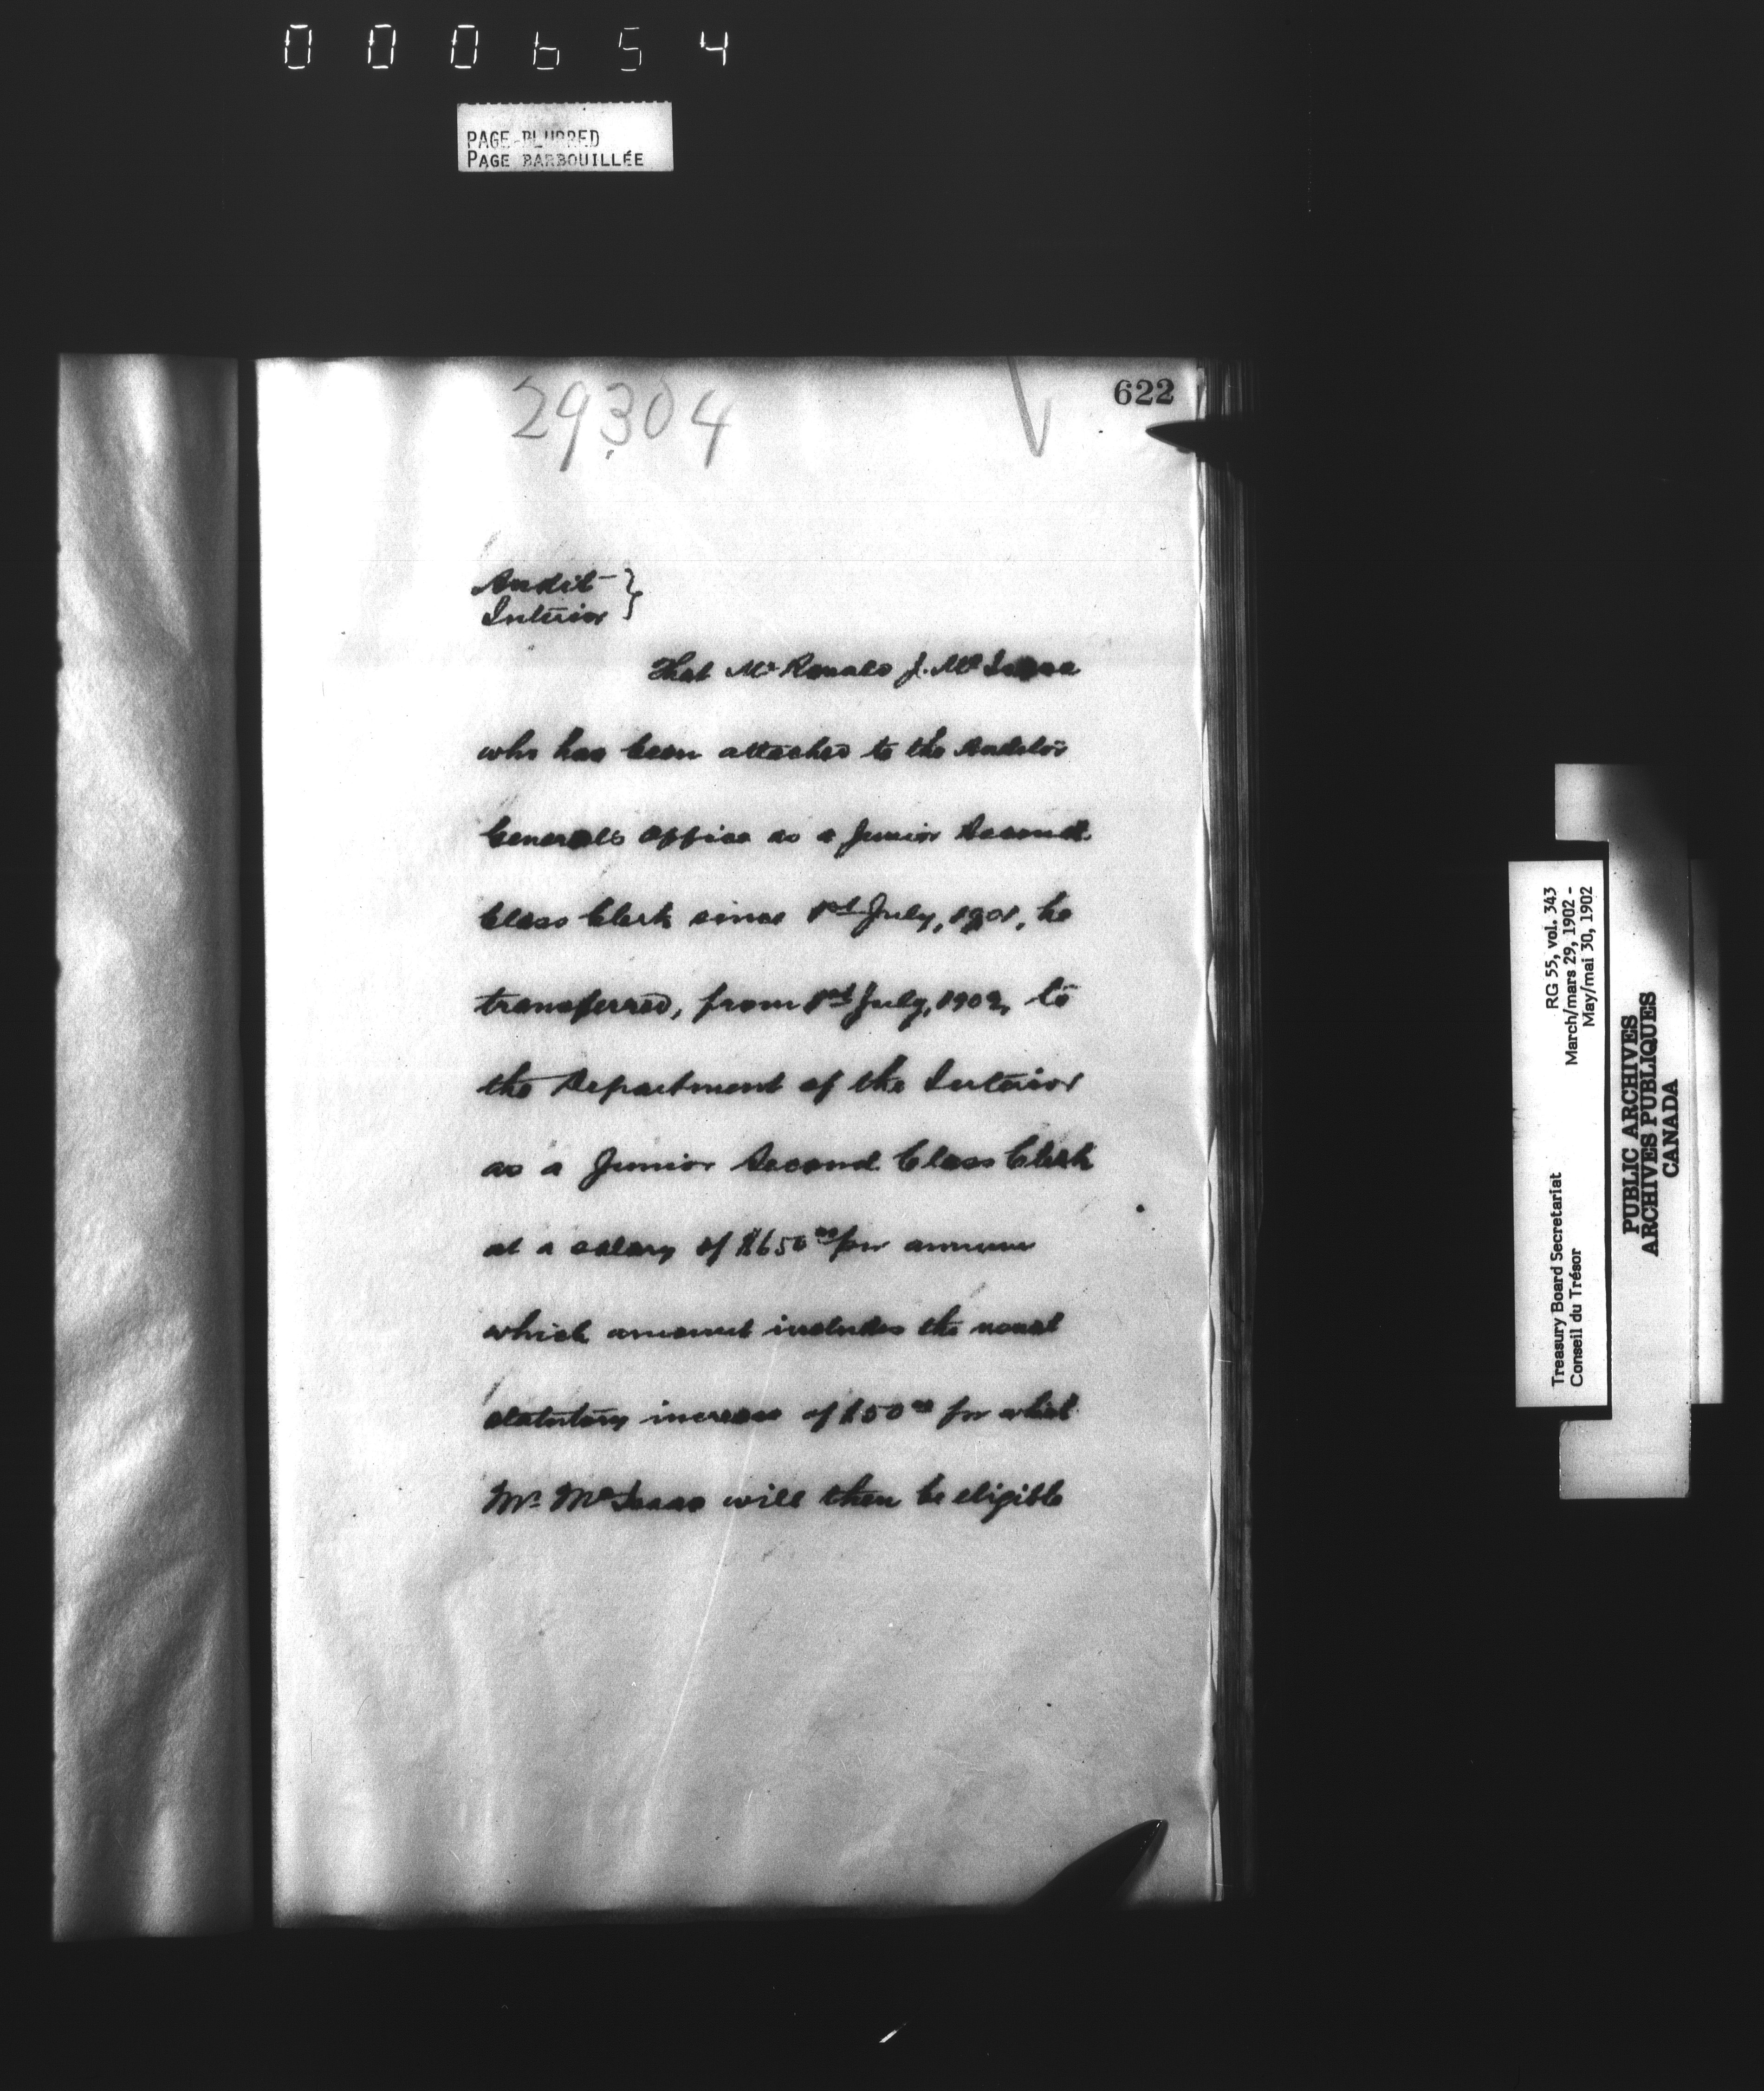 000654
PAGE BLURRED
PAGE BARBOUILLÉE
29304
622
Audit
Interior }
That Mr Ronald J. McIsaac
who has been attached to the Auditor
Generals Office as a Junior Second
Class Clerk since 1st July, 1901, be
transferred, from 1st July, 1902, to
the Department of the Interior
as a Junior Second Class Clerk
at a salary of $650 00 per annum
which amount includes the usual
statutory increase of $50 00 for which
Mr. McIsaac will then be eligible
RG 55, vol. 343
March/mars 29, 1902 -
May/mai 30, 1902
Treasury Board Secretariat
Conseil du Trésor
PUBLIC ARCHIVES
ARCHIVES PUBLIQUES
CANADA